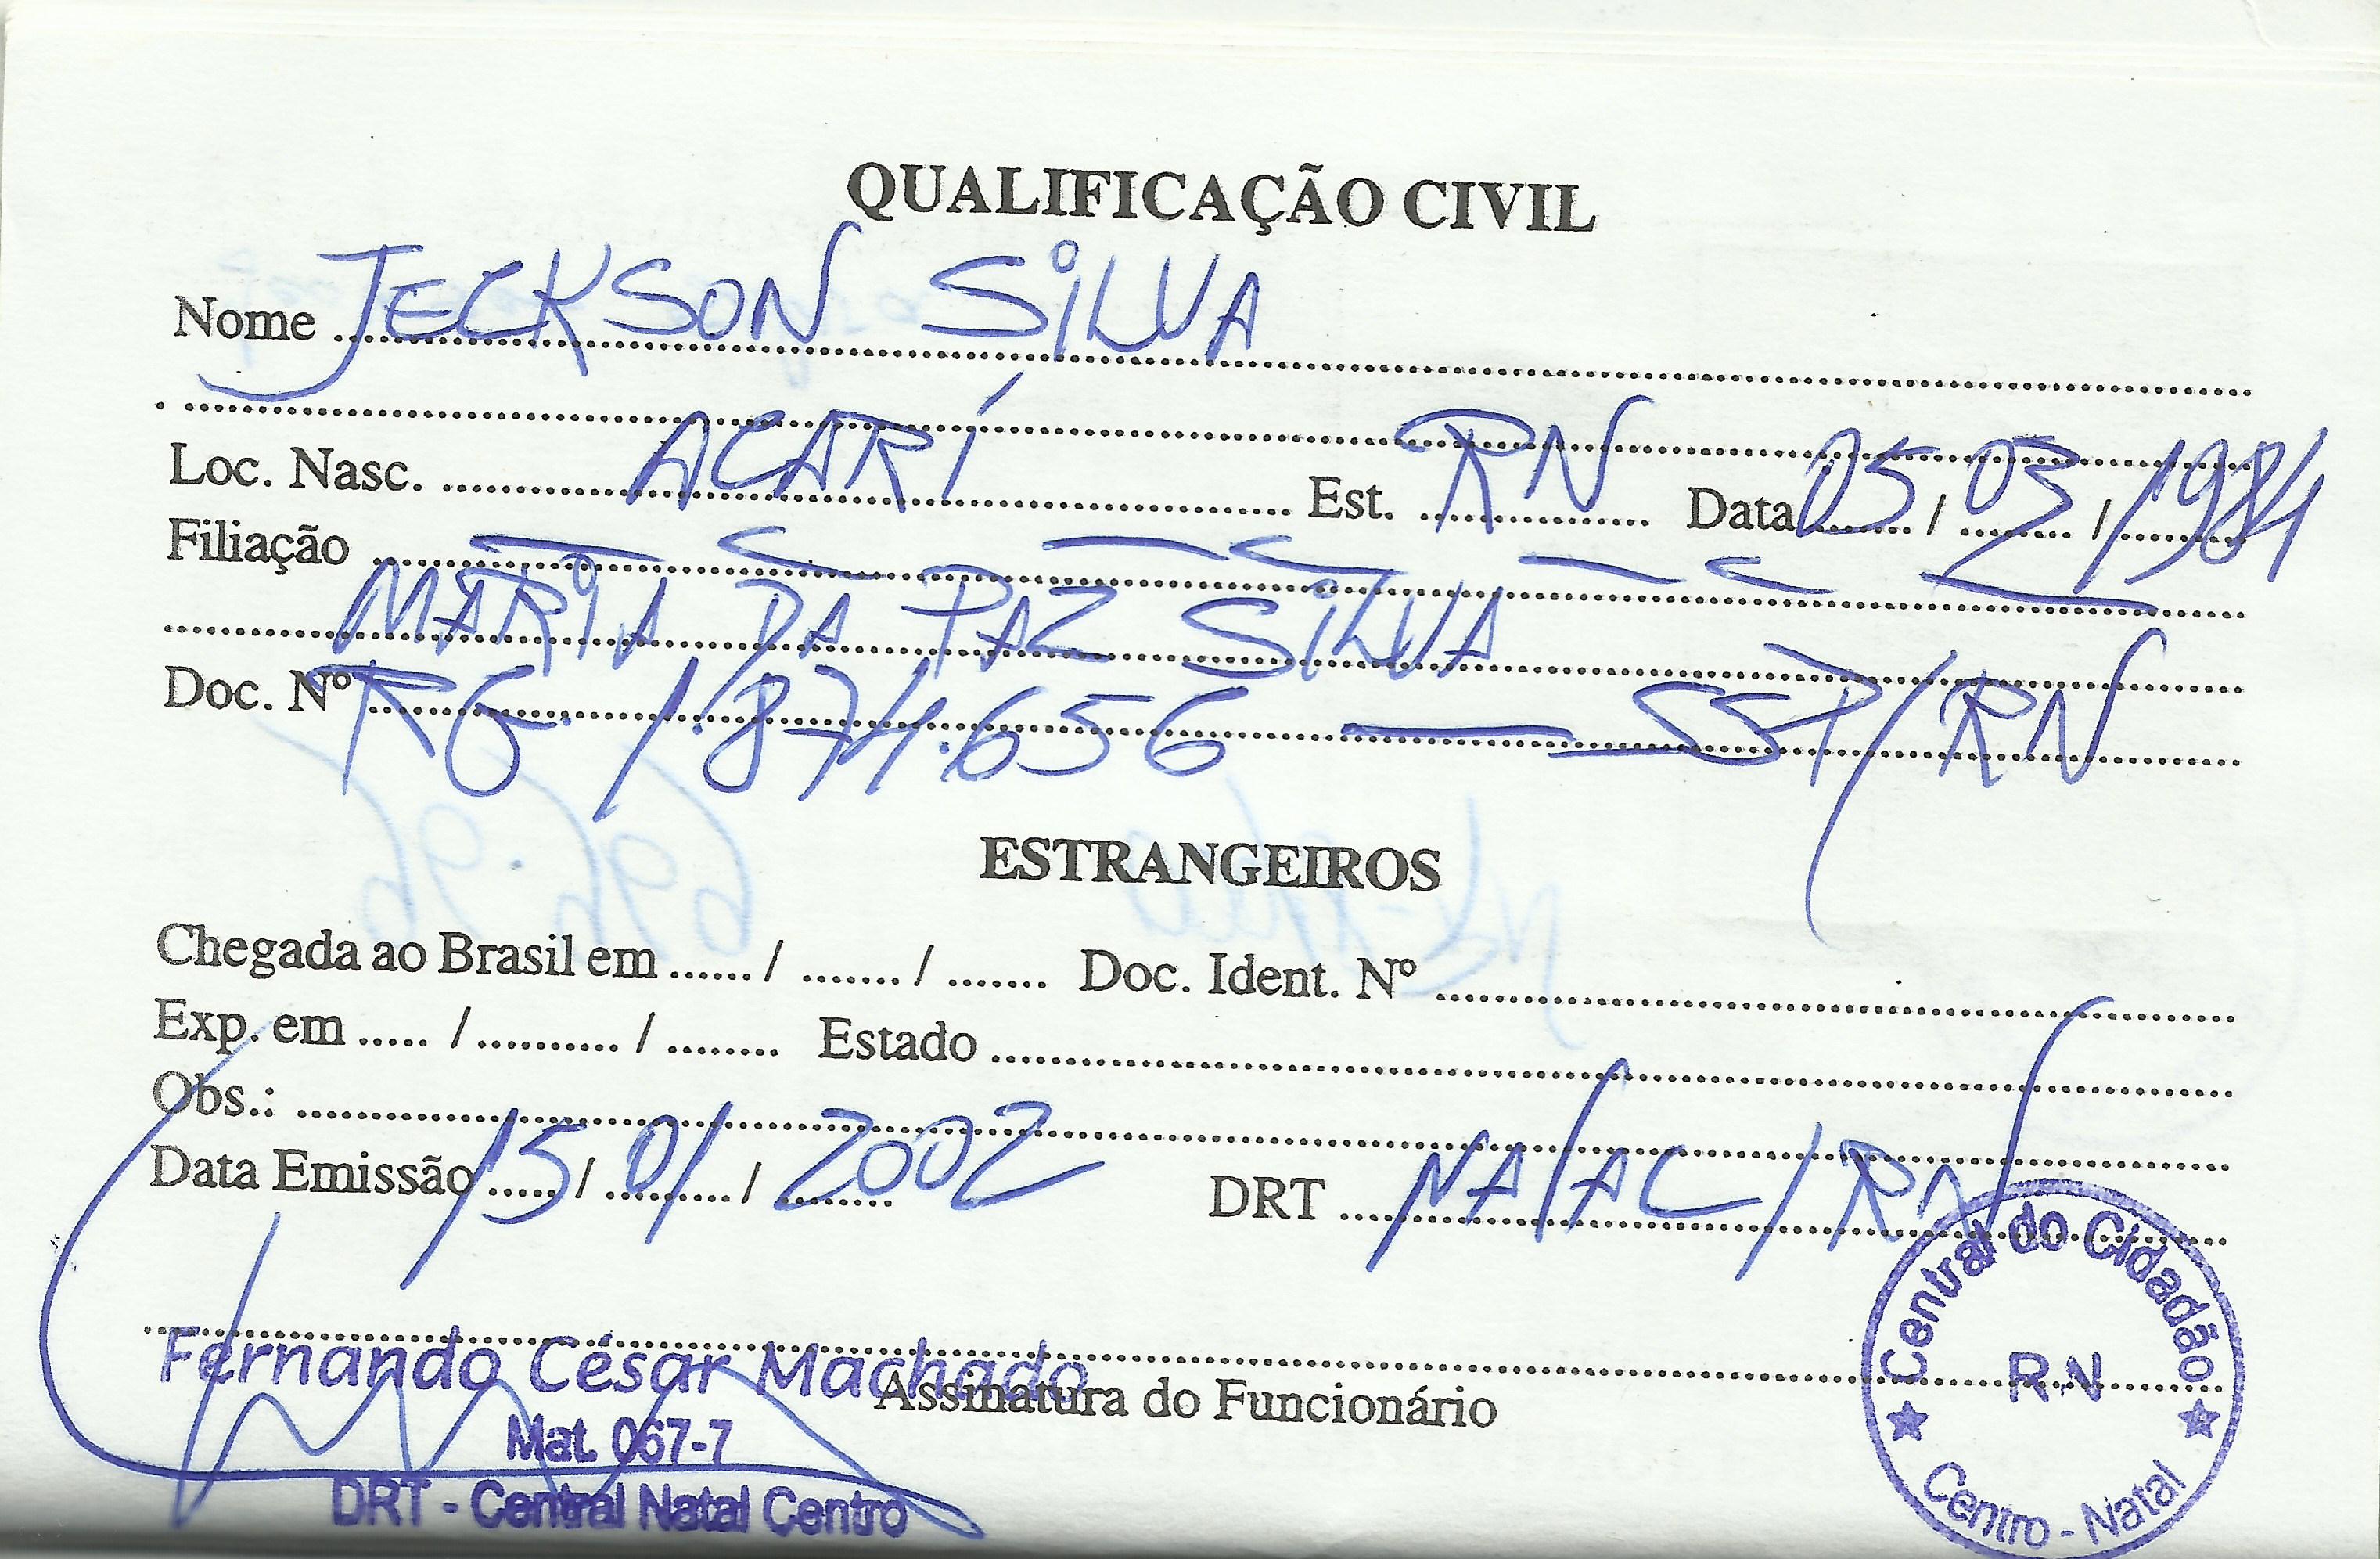 QUALIFICAÇÃO CIVIL
Nome JECKSON SILVA
Loc. Nasc. ACARÍ Est. RN Data 05/03/1984
Filiação
MARIA DA PAZ SILVA
Doc. Nº RG. 1.874.656 — SSP/RN
ESTRANGEIROS
Chegada ao Brasil em ...... / ....... / ....... Doc. Ident. Nº
Exp. em ..... / .......... / ........ Estado
Obs.:
Data Emissão 15/01/2002 DRT NA/AC/RN
Fernando César Machado
Assinatura do Funcionário
Mat. 067-7
DRT - Central Natal Centro
Central do Cidadão
RN
Centro - Natal